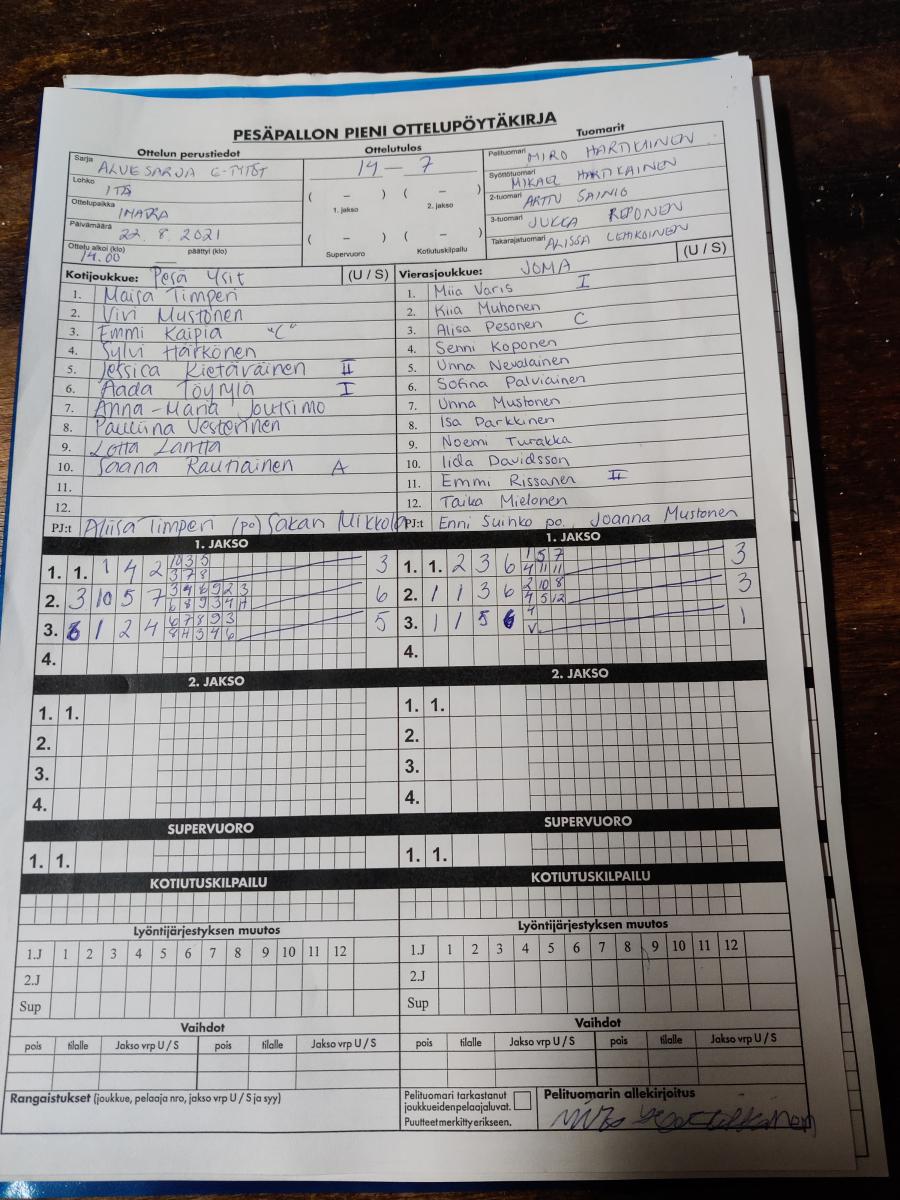 PESÄPALLON PIENI OTTELUPÖYTÄKIRJA
Ottelun perustiedot
Ottelutulos
Tuomarit
Sarja ALUESARJA C-TYTÖT
Lohko ITÄ
Ottelupaikka IMATRA
Päivämäärä 22. 8. 2021
Ottelu alkoi (klo) 14.00 päättyi (klo)
14 – 7
( – ) ( – )
1. jakso 2. jakso
( – ) ( – )
Supervuoro Kotiutuskilpailu
Pelituomari MIRO HARTIKAINEN
Syöttötuomari MIKAEL HARTIKAINEN
2-tuomari ARTTU SAINIO
3-tuomari JUKKA REPONEN
Takarajatuomari ALISSA LEHKOINEN
Kotijoukkue: Pesä Ysit (U / S)
1. Maisa Timperi
2. Vivi Mustonen
3. Emmi Kaipia "C"
4. Sylvi Härkönen
5. Jessica Kietäväinen II
6. Aada Töymlä I
7. Anna-Maria Joutsimo
8. Pauliina Vesterinen
9. Lotta Lantta
10. Saana Rautiainen A
11.
12.
PJ:t Aliisa Timperi (po) Sakari Mikkola
Vierasjoukkue: JOMA (U / S)
1. Miia Varis I
2. Kiia Muhonen
3. Alisa Pesonen C
4. Senni Koponen
5. Unna Nevalainen
6. Sofina Palviainen
7. Unna Mustonen
8. Isa Parkkinen
9. Noemi Turakka
10. Iida Davidsson
11. Emmi Rissanen II
12. Taika Mielonen
PJ:t Enni Suihko po, Joanna Mustonen
1. JAKSO
1. 1. 1 4 2 10 3 5 3
3 7 8
2. 3 10 5 7 3 4 6 9 2 3 6
6 8 9 3 4 H
3. 1 2 4 6 7 8 9 3 5
8 H 3 4 6
4.
1. JAKSO
1. 1. 2 3 6 1 5 7 3
4 11 11
2. 1 1 3 6 2 10 8 3
4 5 12
3. 1 1 5 6 4 1
V
4.
2. JAKSO
1. 1.
2.
3.
4.
2. JAKSO
1. 1.
2.
3.
4.
SUPERVUORO
1. 1.
SUPERVUORO
1. 1.
KOTIUTUSKILPAILU
KOTIUTUSKILPAILU
Lyöntijärjestyksen muutos
1.J 1 2 3 4 5 6 7 8 9 10 11 12
2.J
Sup
Lyöntijärjestyksen muutos
1.J 1 2 3 4 5 6 7 8 9 10 11 12
2.J
Sup
Vaihdot
pois tilalle Jakso vrp U / S pois tilalle Jakso vrp U / S
Vaihdot
pois tilalle Jakso vrp U / S pois tilalle Jakso vrp U / S
Rangaistukset (joukkue, pelaaja nro, jakso vrp U / S ja syy)
Pelituomari tarkastanut
joukkueidenpelaajaluvat.
Puutteet merkitty erikseen.
Pelituomarin allekirjoitus